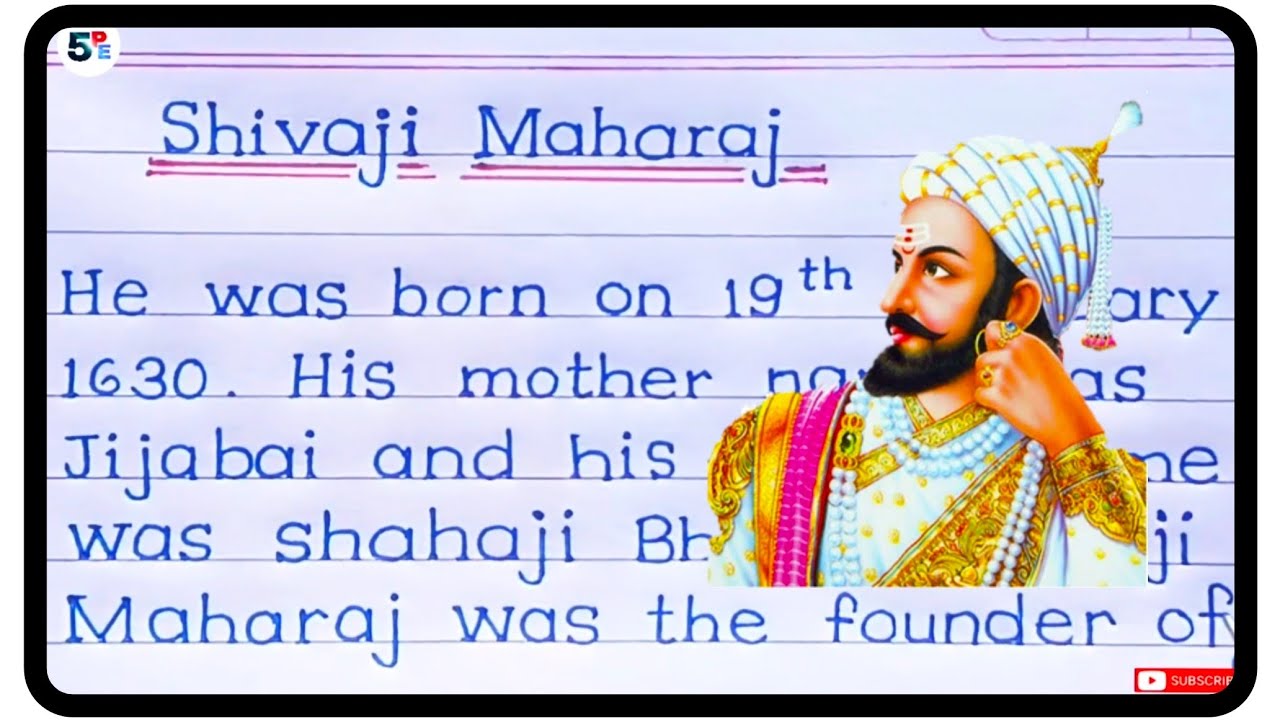 5PE
Shivaji Maharaj
He was born on 19th ary
1630. His mother as
Jijabai and his me
was shahaji Bh ji
Maharaj was the founder of
SUBSCRIB